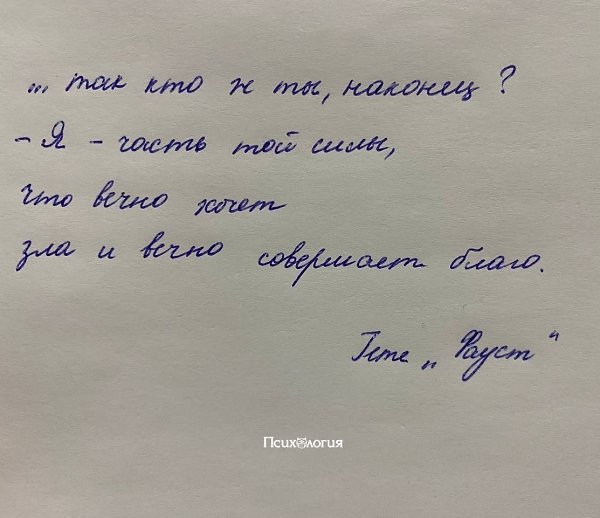 ... так кто ж ты, наконец?
– Я – часть той силы,
что вечно хочет
зла и вечно совершает благо.
Гете „Фауст“
Психология